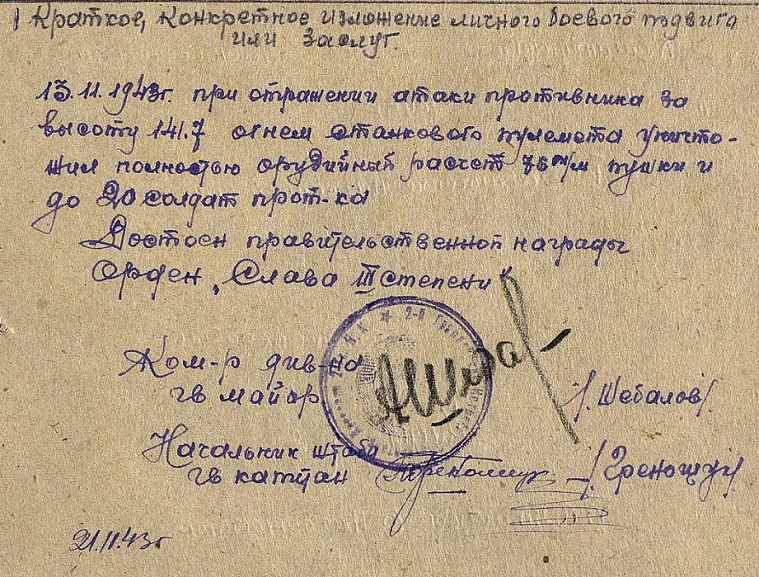 I Краткое, конкретное изложение личного боевого подвига
или заслуг.
13.11.1943г. при отражении атаки противника за
высоту 141.7 огнем станкового пулемета уничто-
жил полностью орудийный расчет 76 м/м пушки и
до 20 солдат прот-ка
Достоен правительственной награды
Орден „Слава III степени"
Ком-р див-на
гв майор
/Шебалов/
Начальник штаба
гв капитан
21.11.43г